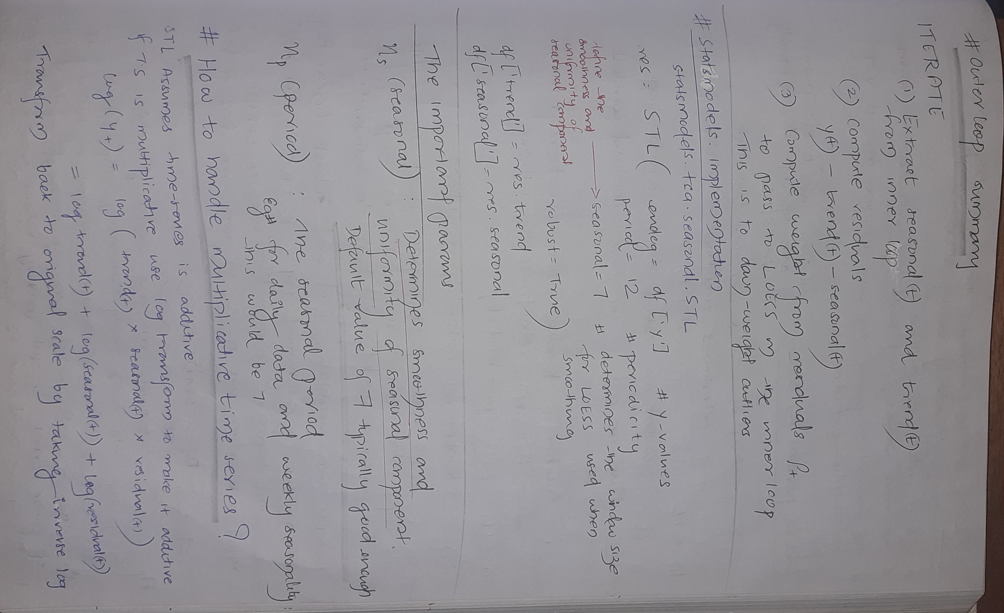 # Outer loop summary
ITERATE
(1) Extract seasonal(t) and trend(t)
from inner loop
(2) Compute residuals
y(t) - trend(t) - seasonal(t)
(3) Compute weight from residuals ρt
to pass to LOESS in the inner loop
This is to down-weight outliers
# Statsmodels implementation
statsmodels.tsa.seasonal.STL
res = STL( endog = df['y'] # y-values
period = 12 # periodicity
define the
smoothness and
uniformity of
seasonal component
seasonal = 7 # determines the window size
for LOESS used when
smoothing
robust = True)
df['trend'] = res.trend
df['seasonal'] = res.seasonal
The important params
ns (seasonal) : Determines smoothness and
uniformity of seasonal component.
Default value of 7 typically good enough
np (period) : The seasonal period
Eg# for daily data and weekly seasonality:
This would be 7
# How to handle multiplicative time series?
STL Assumes time-series is additive
if TS is multiplicative use log transform to make it additive
log(yt) = log (trend(t) × seasonal(t) × residual(t))
= log trend(t) + log(seasonal(t)) + log(residual(t))
Transform back to original scale by taking inverse log